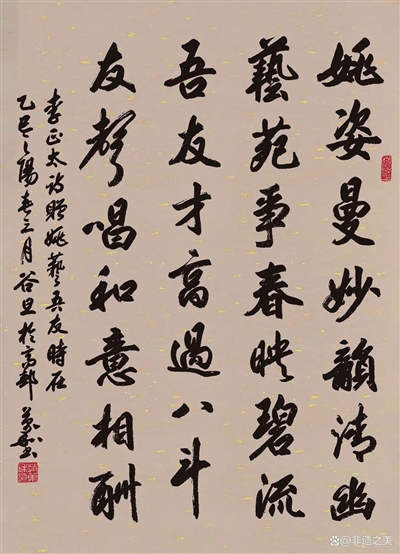 姚姿曼妙韻清幽
藝苑爭春映碧流
吾友才高過八斗
友聲唱和意相酬
李正太詩贈姚藝吾友時在
乙巳之陽春三月谷旦於高郵
非遗之美